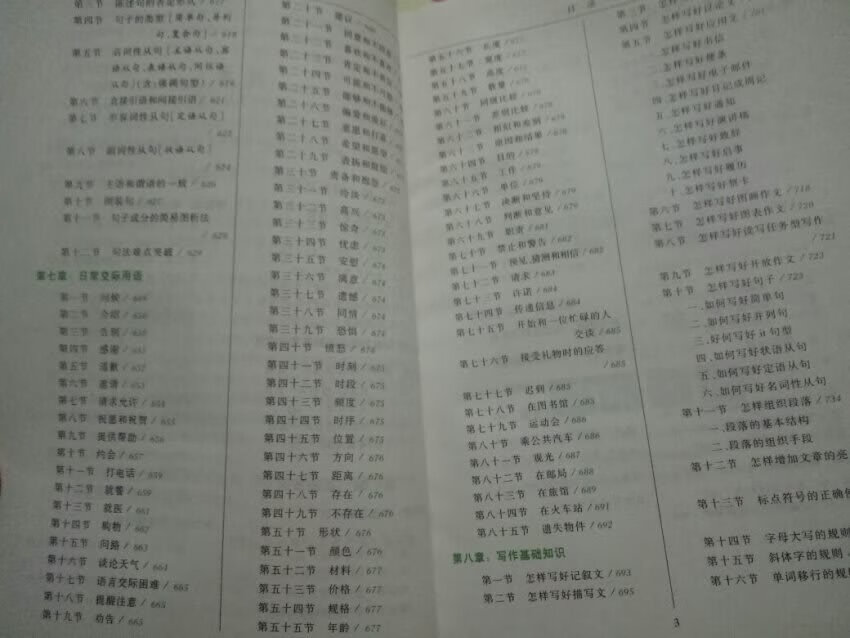 第四节 句子的类型[简单句、并列
句、复合句] / 618
第五节 名词性从句[主语从句、宾
语从句、表语从句、同位语
从句](含:强调句型) / 620
第六节 直接引语和间接引语 / 621
第七节 形容词性从句[定语从句]
/ 623
第八节 副词性从句[状语从句]
/ 624
第九节 主语和谓语的一致 / 626
第十节 倒装句 / 627
第十一节 句子成分的简易图析法
第十二节 句法难点突破
第七章 日常交际用语
第一节 问候
第二节 介绍
第三节 告别
第四节 感谢
第五节 道歉
第六节 邀请
第七节 请求允许
第八节 祝愿和祝贺 / 655
第九节 提供帮助 / 656
第十节 约会 / 657
第十一节 打电话 / 659
第十二节 就餐 / 659
第十三节 就医 / 661
第十四节 购物 / 662
第十五节 问路 / 663
第十六节 谈论天气 / 664
第十七节 语言交际困难 / 665
第十八节 提醒注意 / 665
第十九节 劝告 / 665
第二十节 建议
第二十一节
第二十二节
第二十三节
第二十四节
第二十五节
第二十六节
第二十七节
第二十八节
第二十九节
第三十节 责备和抱怨
第三十一节 冷淡
第三十二节 高兴
第三十三节 惊奇
第三十四节 忧虑 / 673
第三十五节 安慰 / 673
第三十六节 满意 / 673
第三十七节 遗憾 / 673
第三十八节 同情 / 674
第三十九节 恐惧 / 674
第四十节 愤怒 / 674
第四十一节 时刻 / 675
第四十二节 时段 / 675
第四十三节 频度 / 675
第四十四节 时序 / 675
第四十五节 位置 / 675
第四十六节 方向 / 676
第四十七节 距离 / 676
第四十八节 存在 / 676
第四十九节 不存在 / 676
第五十节 形状 / 676
第五十一节 颜色 / 676
第五十二节 材料 / 677
第五十三节 价格 / 677
第五十四节 规格 / 677
第五十五节 年龄 / 677
目 录
第五十六节 长度 / 677
第五十七节 宽度
第五十八节 高度
第五十九节 数量
第六十节 同级比较
第六十一节 差别比较
第六十二节 相似和差别
第六十三节 原因和结果
第六十四节 目的
第六十五节 工作
第六十六节 单位 / 679
第六十七节 决断和坚持 / 679
第六十八节 判断和意见 / 679
第六十九节 职责 / 681
第七十节 禁止和警告 / 682
第七十一节 预见、猜测和相信 / 682
第七十二节 请求 / 683
第七十三节 许诺 / 684
第七十四节 传递信息 / 684
第七十五节 开始和一位忙碌的人
交谈 / 685
第七十六节 接受礼物时的应答
/ 685
第七十七节 迟到 / 685
第七十八节 在图书馆 / 685
第七十九节 运动会 / 686
第八十节 乘公共汽车 / 686
第八十一节 观光 / 687
第八十二节 在邮局 / 687
第八十三节 在旅馆 / 689
第八十四节 在火车站 / 691
第八十五节 遗失物件 / 692
第八章: 写作基础知识
第一节 怎样写好记叙文 / 693
第二节 怎样写好描写文 / 695
第三节 怎样写好议论文
第四节 怎样写好说明文
第五节 怎样写好应用文
一、怎样写好书信
二、怎样写好便条
三、怎样写好电子邮件
四、怎样写好日记或周记
五、怎样写好通知
六、怎样写好演讲稿
七、怎样写好致辞
八、怎样写好启事
九、怎样写好履历
十、怎样写好贺卡
第六节 怎样写好图画作文 / 718
第七节 怎样写好图表作文 / 720
第八节 怎样写好读写任务型写作
/ 721
第九节 怎样写好开放作文 / 723
第十节 怎样写好句子 / 723
一、如何写好简单句
二、如何写好并列句
三、如何写好 it 句型
四、如何写好状语从句
五、如何写好定语从句
六、如何写好名词性从句
第十一节 怎样组织段落 / 734
一、段落的基本结构
二、段落的组织手段
第十二节 怎样增加文章的亮
第十三节 标点符号的正确使
第十四节 字母大写的规则
第十五节 斜体字的规则
第十六节 单词移行的规
3